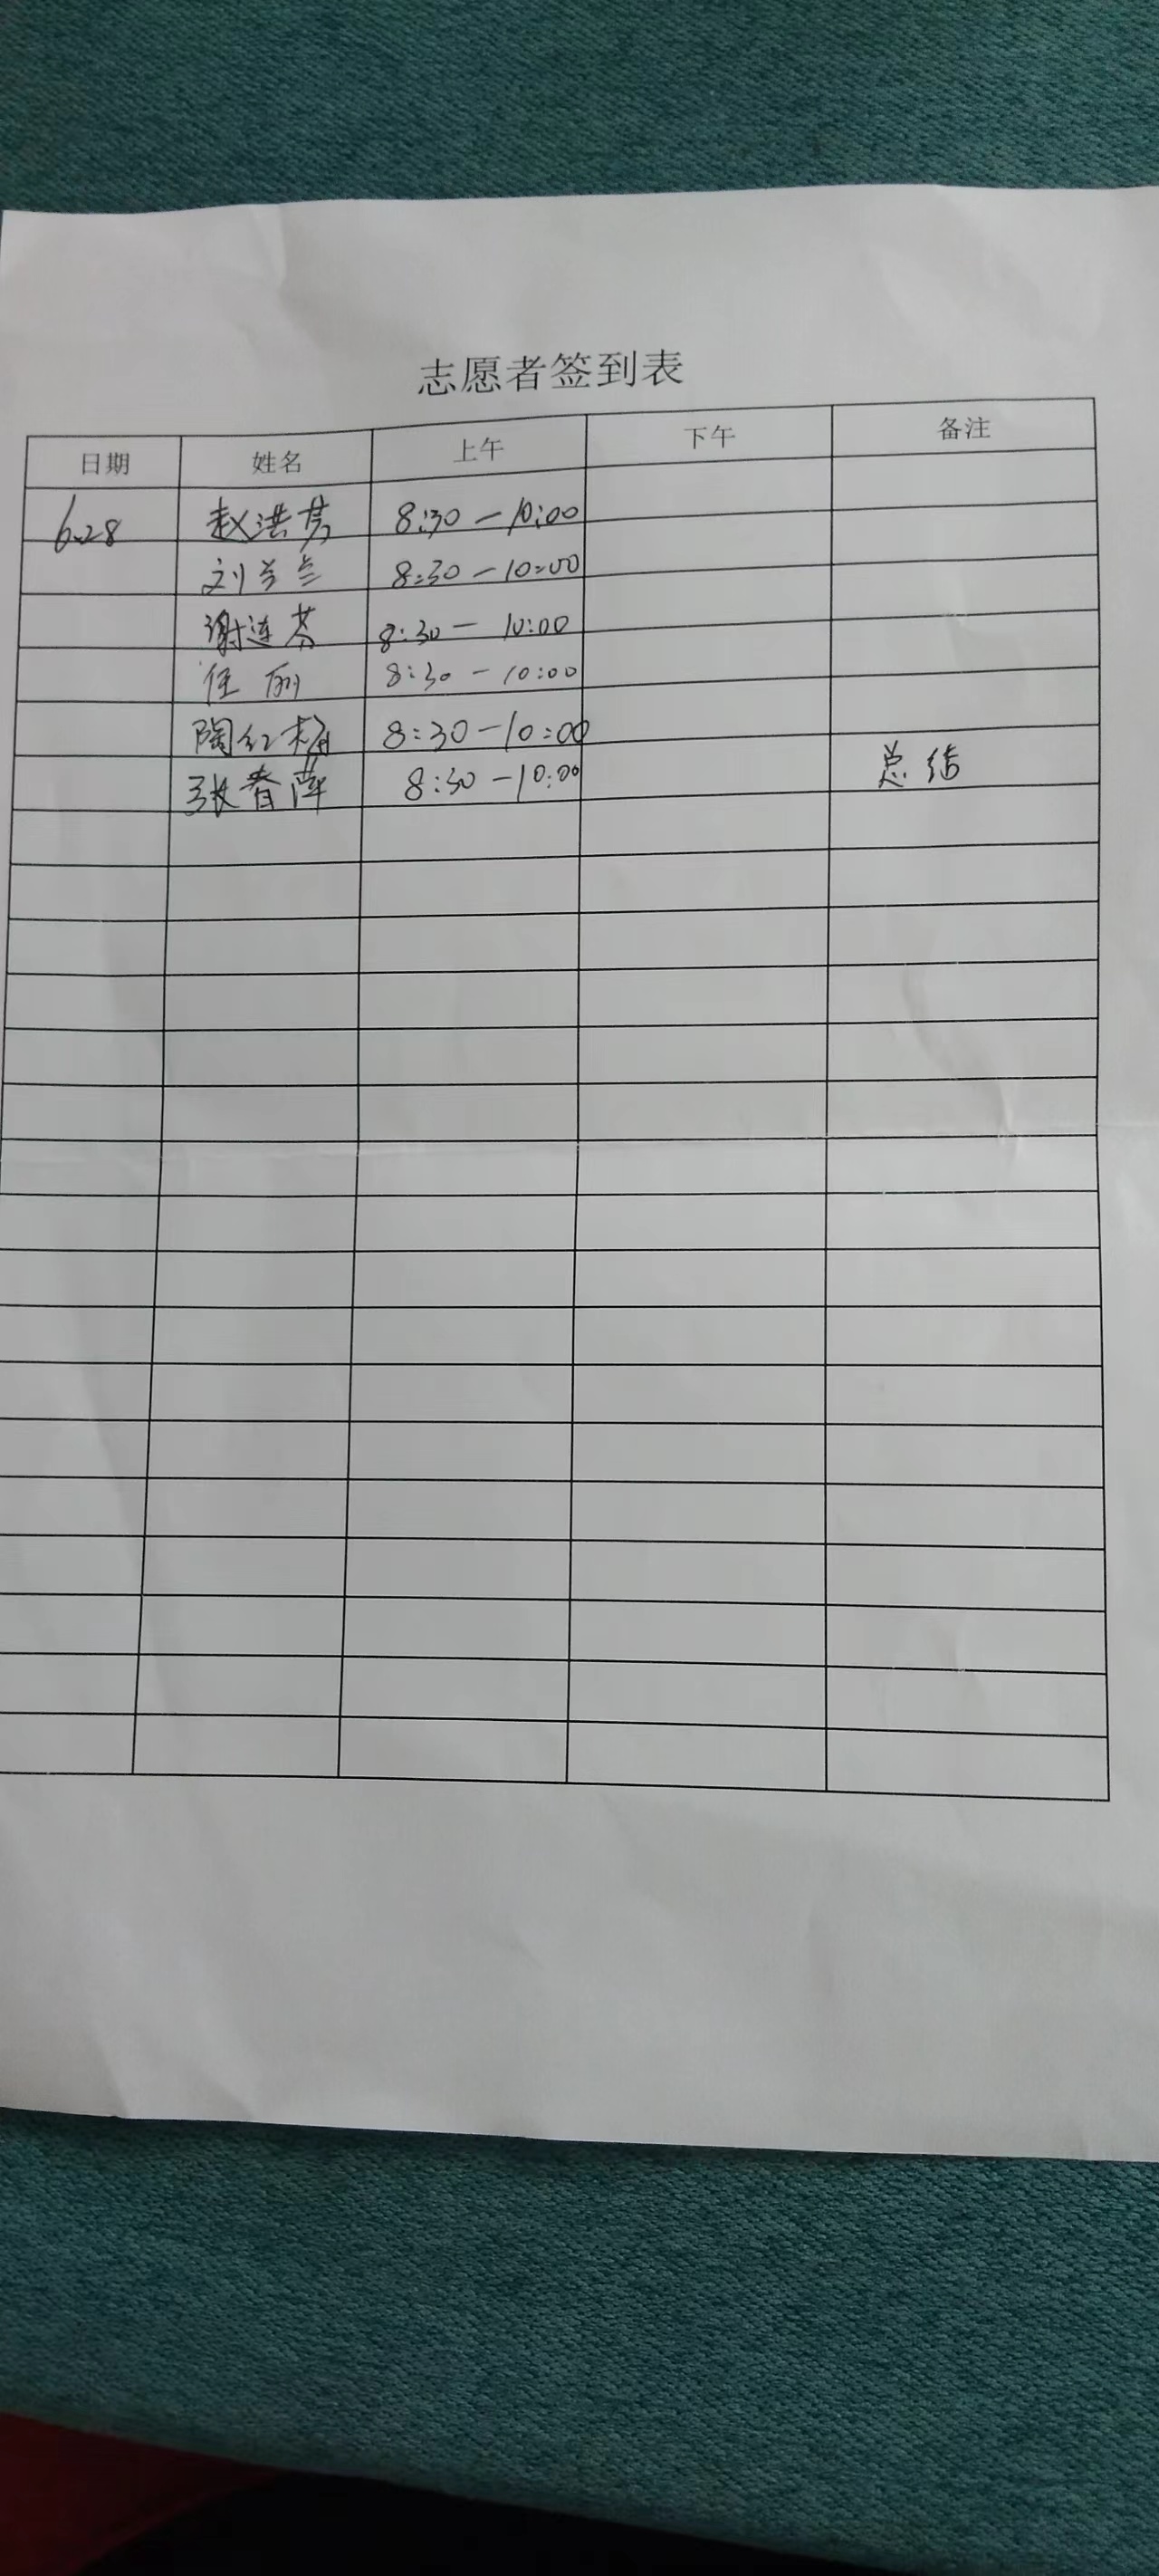 志愿者签到表
日期 姓名 上午 下午 备注
6.28 赵洪芳 8:30-10:00
刘兰兰 8:30-10:00
谢连芬 8:30-10:00
任丽 8:30-10:00
陶红梅 8:30-10:00
张春萍 8:30-10:00 总结